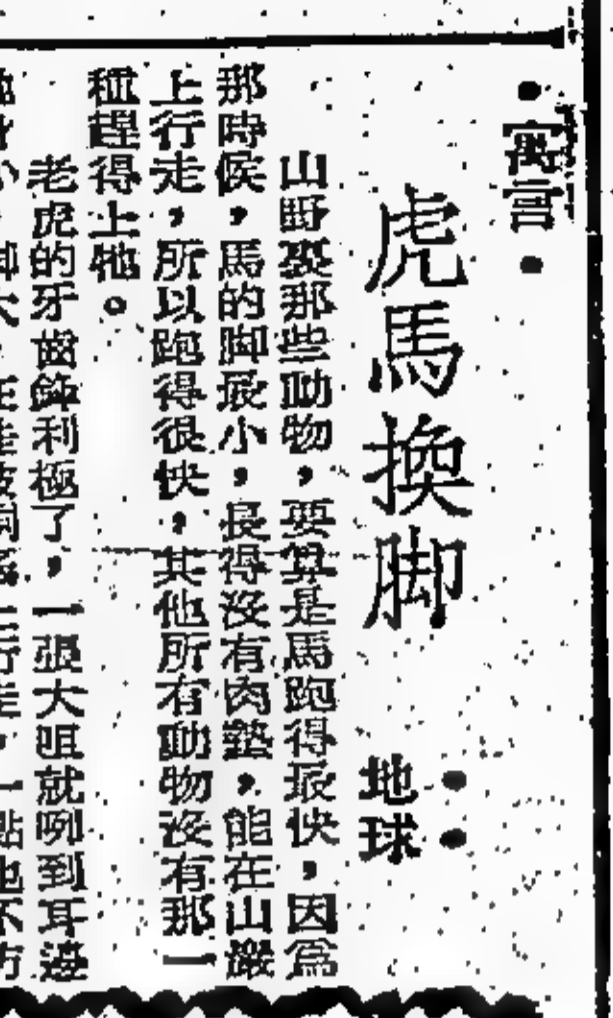 •寓言•
虎馬換脚
地球
山野裏那些動物，要算是馬跑得最快，因爲
那時候，馬的脚最小，長得沒有肉墊，能在山巖
上行走，所以跑得很快，其他所有動物沒有那一
種趕得上牠。
老虎的牙齒鋒利極了，一張大咀就咧到耳邊